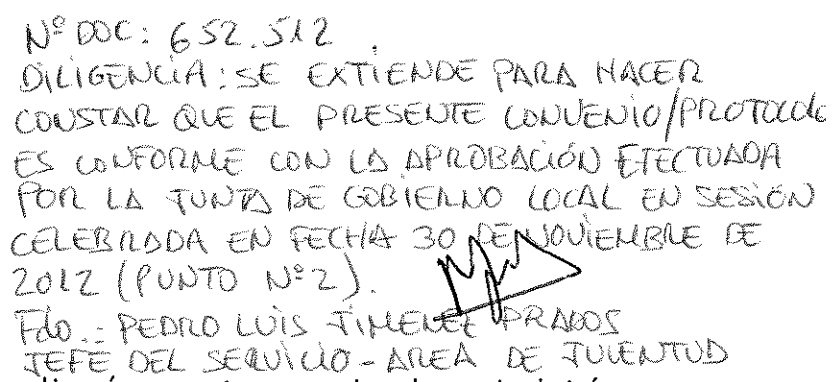 Nº DOC: 652.512.
DILIGENCIA: SE EXTIENDE PARA HACER
CONSTAR QUE EL PRESENTE CONVENIO/PROTOCOLO
ES CONFORME CON LA APROBACIÓN EFECTUADA
POR LA JUNTA DE GOBIERNO LOCAL EN SESIÓN
CELEBRADA EN FECHA 30 DE NOVIEMBRE DE
2012 (PUNTO Nº2).
Fdo.: PEDRO LUIS JIMENEZ PRADOS
JEFE DEL SERVICIO - AREA DE JUVENTUD